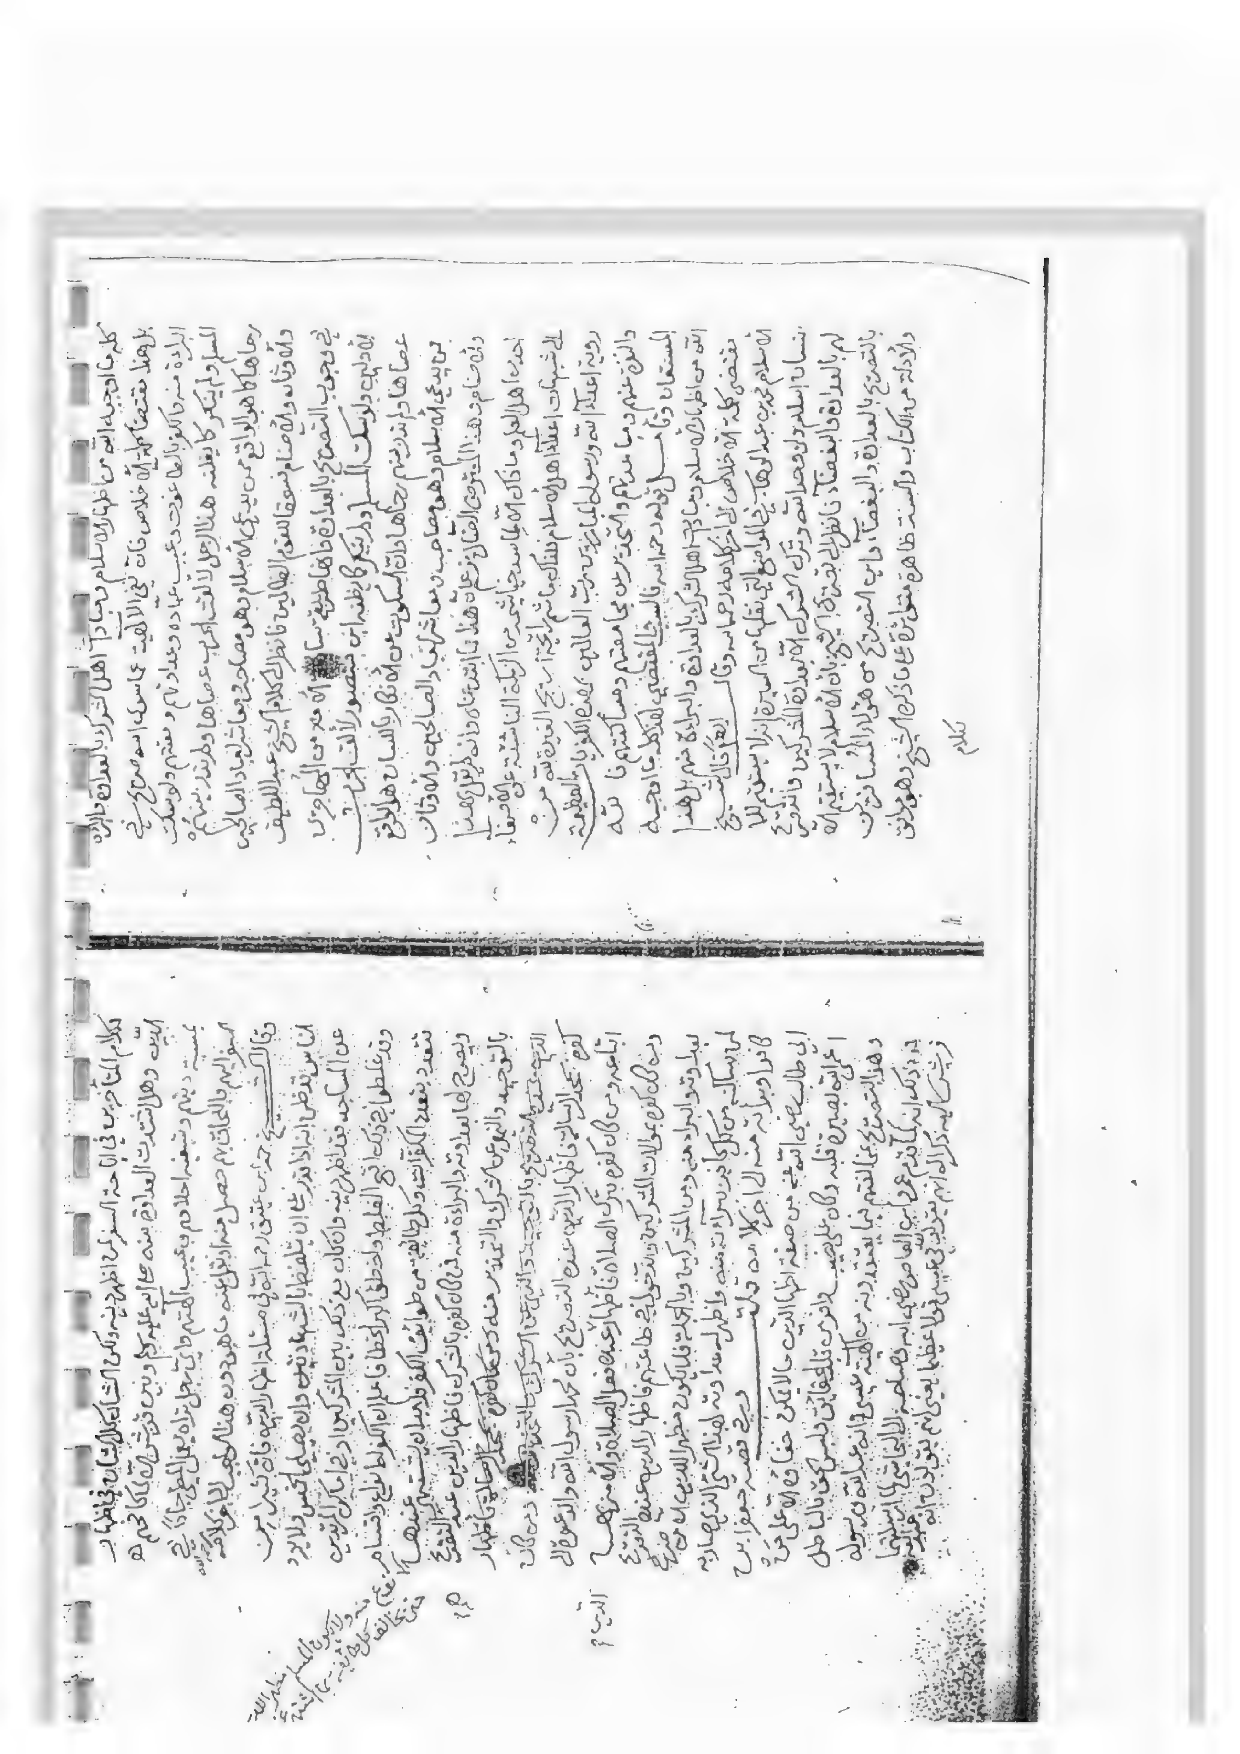 كلما اوجبه الله من اظهار الاسلام ومبادأة اهل الشرك بالعداوة والبراءة
بل هذا مقتضا كلمة الاخلاص فان نفي الالهية عما سوى الله صريح في
البراءة منه والكفر بالطاغوت وعيب عبادته وعداوتهم ومقتهم ولو سكت
المسلم ولم ينكر كما يظنه هذا الرجل لالقت الحرب عصاها ولم تدر بينهم
رحاها كما هو الواقع ممن يدعي الاسلام وهو مصاحب معاشر لعباد الصالحين
والاوثان والاصنام فسحقا للقوم الظالمين فانظر الى كلام الشيخ عبد اللطيف
في وجوب التصريح بالعداوة وانها طريقة من المهاجرين
الاولين ولو سكت المسلم ولم ينكر كما يظنه ابن منصور لألقت الحرب
عصاها ولم تدر بينهم رحاها وان السكوت عن الانكار باللسان هو الواقع
من يدعي الاسلام وهو مصاحب ومعاشر لعباد الصالحين والاوثان
والاصنام وهذا المعترض الضال يزعم ان هذا ما ابتدعناه وانه
احد من اهل العلم وما ذاك الا لما سد خياشيمه من الزكمة الناشئة عن الاصغاء
الى شبهات اعداء اهل الاسلام فلذلك ما شم رائحة اريج الغيرة لله من
روية اعداء الله ورسوله المبارزين رب العالمين بهذه الكفريات العظيمة
والنفرة عنهم ومباعدتهم والتحذير من مجامعتهم ومساكنتهم فالله
المستعان وتأمل قوله رحمه الله المقتضي لهذا كلما اوجبه
الله من اظهار الاسلام ومباداة اهل الشرك بالعداوة والبراءة منهم بل هذا
مقتضى كلمة الاخلاص الى اخر كلامه رحمه الله وقال ايضا قال الشيخ
الاسلام محمد بن عبد الوهاب في المواضع التي نقلها من السيرة انه لا يستقيم للا
نسان اسلام ولو وحد الله وترك الشرك الا بعداوة المشركين والتصريح
لهم بالعداوة والبغضاء فانظر الى تصريح الشيخ بان الاسلام لا يستقيم الا
بالتصريح بالعداوة والبغضاء واين التصريح من هؤلاء المسافرين
والادلة من الكتاب والسنة ظاهرة متواترة على ما ذكره الشيخ وهو موافق
لكلام
لكلام المتأخرين في اباحة السفر لمن اظهر دينه ولكن الشأن كل الشان في اظهار
الدين وهل اشتدت العداوة بينه صلى الله عليه وسلم وبين قريش الا لما كافحهم
بمسبة دينهم وتسفيه احلامهم وعيب الهتهم واي رجل تراه يعمل المطي جادا في
السفر اليهم واللحاق بهم حصل منه او نقل عنه ما هو دون هذا الواجب الى اخر كلامه
وقال الشيخ حمد ابن عتيق رحمه الله في مسئلة اظهار الدين فان كثيرا من
الناس قد ظن انه اذا قدر على ان يتلفظ بالشهادتين وان يصلي الخمس ولا يرد
عن المساجد فقد اظهر دينه وان كان مع ذلك بين المشركين او في اماكن المرتدين
وقد غلطوا في ذلك اقبح الغلط فاعلم ان الكفر له انواع واقسام
تتعدد بتعدد المكفرات وكل طائفة من طوائف الكفر قد اشتهر عندها
ويصرح لها بعداوته والبراءة منه فمن كان كفره بالشرك فاظهار الدين عنده التصريح
بالتوحيد والنهي عن الشرك والتحذير منه ومن كان كفره بجحد الرسالة فاظهار
الدين عنده التصريح بالتوحيد والنهي عن الشرك والتحذير ومن كان
كفره بجحد الرسالة فاظهار الدين عنده التصريح بأن محمدا رسول الله والدعوة الى
اتباعه ومن كان كفره بترك الصلاة فاظهار الدين عنده فعل الصلاة والامر بها
ومن كان كفره بموالات المشركين والدخول في طاعتهم فاظهار الدين عنده التصريح
بعداوته والبراءة منه ومن المشركين وبالجملة فلا يكون مظهرا لدينه الا من صرح
لمن ساكنه من كل كافر ببراءته منه واظهر له عداوته لهذا الشيء الذي صار به
كافرا وبراءته منه الى اخر كلامه قلت وفي قصة جعفر ابن
ابي طالب وصحبه رضي الله عنهم من صفة اظهار الدين ما لا يمكن خفاؤه الا على من
اعمى الله بصيرة قلبه وكان على نصيب وافر من قلب الحقائق ولبس الحق بالباطل
وهذا التصريح بمخالفتهم فيما يعتقدونه من آلهية عيسى وانه عبد الله ورسوله